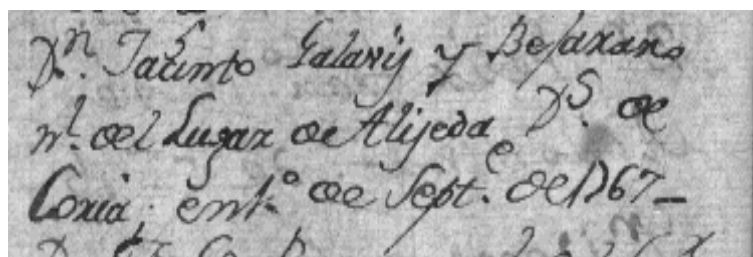 Dn. Jacinto Galavis y Bejarano
nl. del Lugar de Alijeda, Ds. de
Coria; ento. de Septe. de 1767_